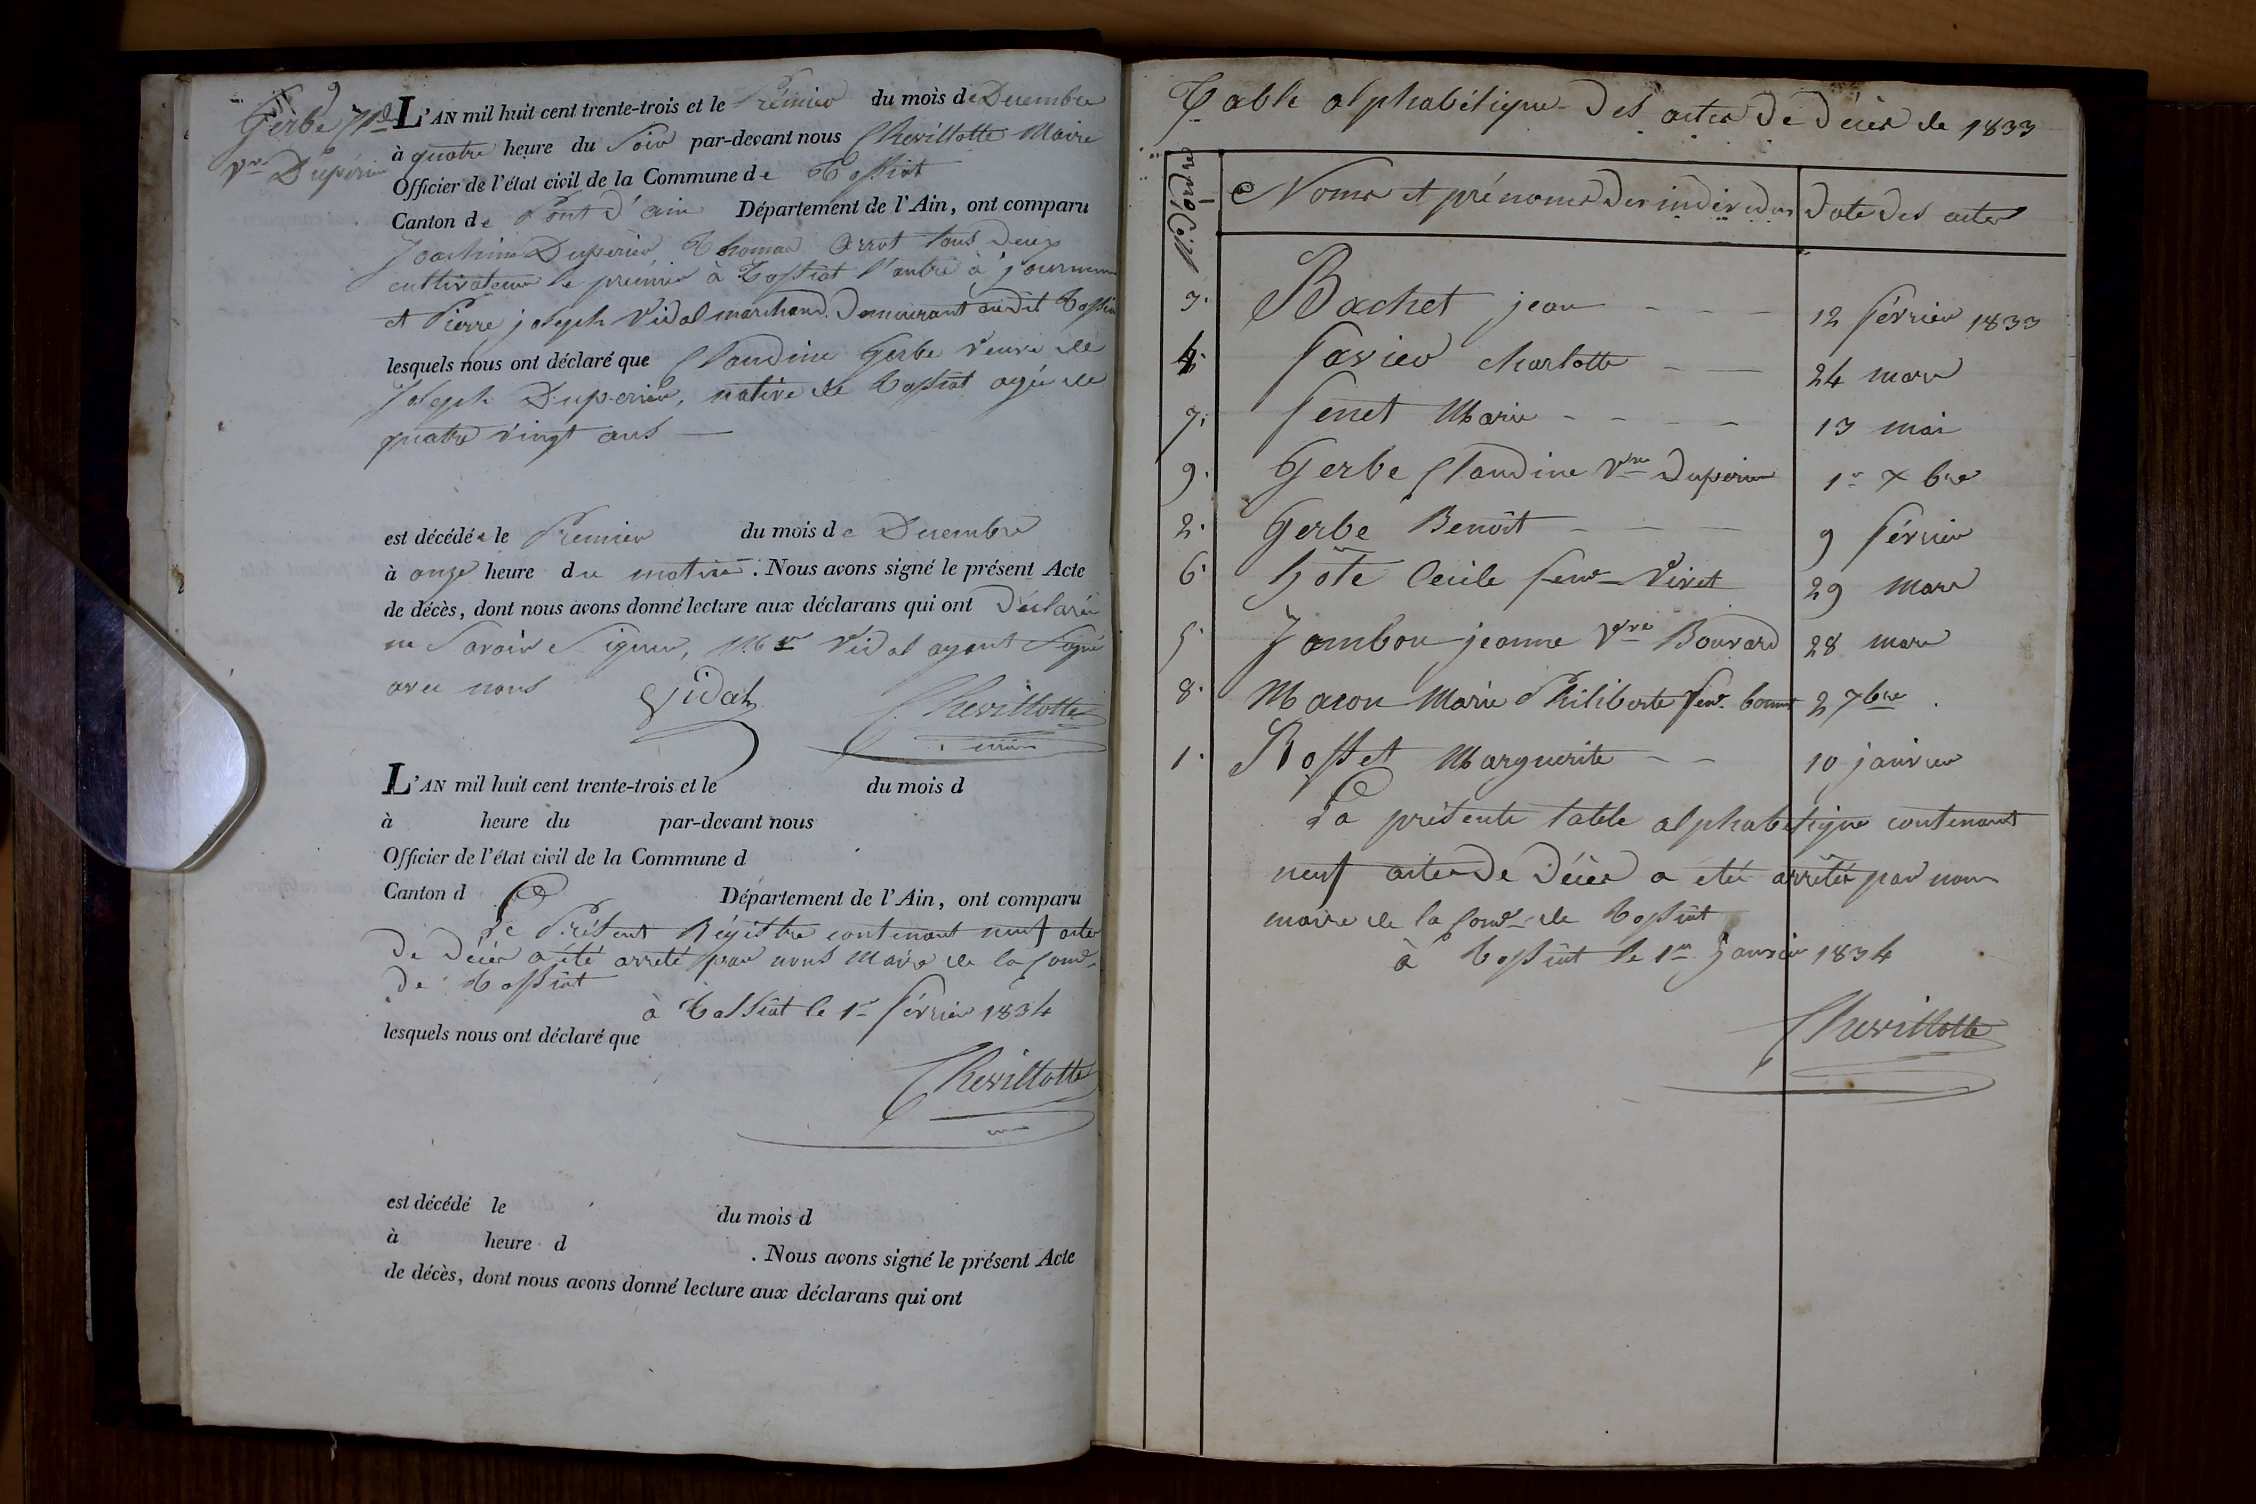 9
Gerbe
Vve Duperier
L'AN mil huit cent trente-trois et le Premier du mois de Decembre
à quatre heure du Soir par-devant nous Chevillotte Maire
Officier de l'état civil de la Commune de Tossiat
Canton de Pont d'ain Département de l'Ain, ont comparu
Joachim Duperier Thomas Arrot tous deux
cultivateur le premier à Tossiat l'autre à journans
et Pierre joseph Vidal marchand demeurant audit Tossiat
lesquels nous ont déclaré que Claudine Gerbe veuve de
Joseph Duperier, native de Tossiat agée de
quatre vingt ans
est décédée le Premier du mois de Decembre
à onze heure du matin. Nous avons signé le présent Acte
de décès, dont nous avons donné lecture aux déclarans qui ont Déclaré
ne Savoir Signer, Vidal ayant Signé
avec nous Vidal Chevillotte
L'AN mil huit cent trente-trois et le du mois d
à heure du par-devant nous
Officier de l'état civil de la Commune d
Canton d Département de l'Ain, ont comparu
Le Présent Régistre contenant neuf actes
De Décès a été arreté par nous Maire de la Comne
De Tossiat
à Tossiat le 1er février 1834
lesquels nous ont déclaré que
Chevillotte
est décédé le du mois d
à heure d . Nous avons signé le présent Acte
de décès, dont nous avons donné lecture aux déclarans qui ont
Table alphabétique Des actes De décès de 1833
Noms et prénoms des individus date des actes
3. Bachet jean 12 février 1833
4. favier charlotte 24 mars
7. fenet Marie 13 mai
9. Gerbe Claudine Vve Duperier 1er Xbre
2. Gerbe Benoît 9 février
6. hôte Cecile feme Viret 29 mars
5. Jambon jeanne Vve Bouvard 28 mars
8. Macon Marie Philiberte feme 2 7bre
1. Rosset Marguerite 10 janvier
La présente table alphabetique contenant
neuf actes De Décès a été arrêtée par nous
maire de la Comne de Tossiat
à Tossiat le 1er Janvier 1834
Chevillotte